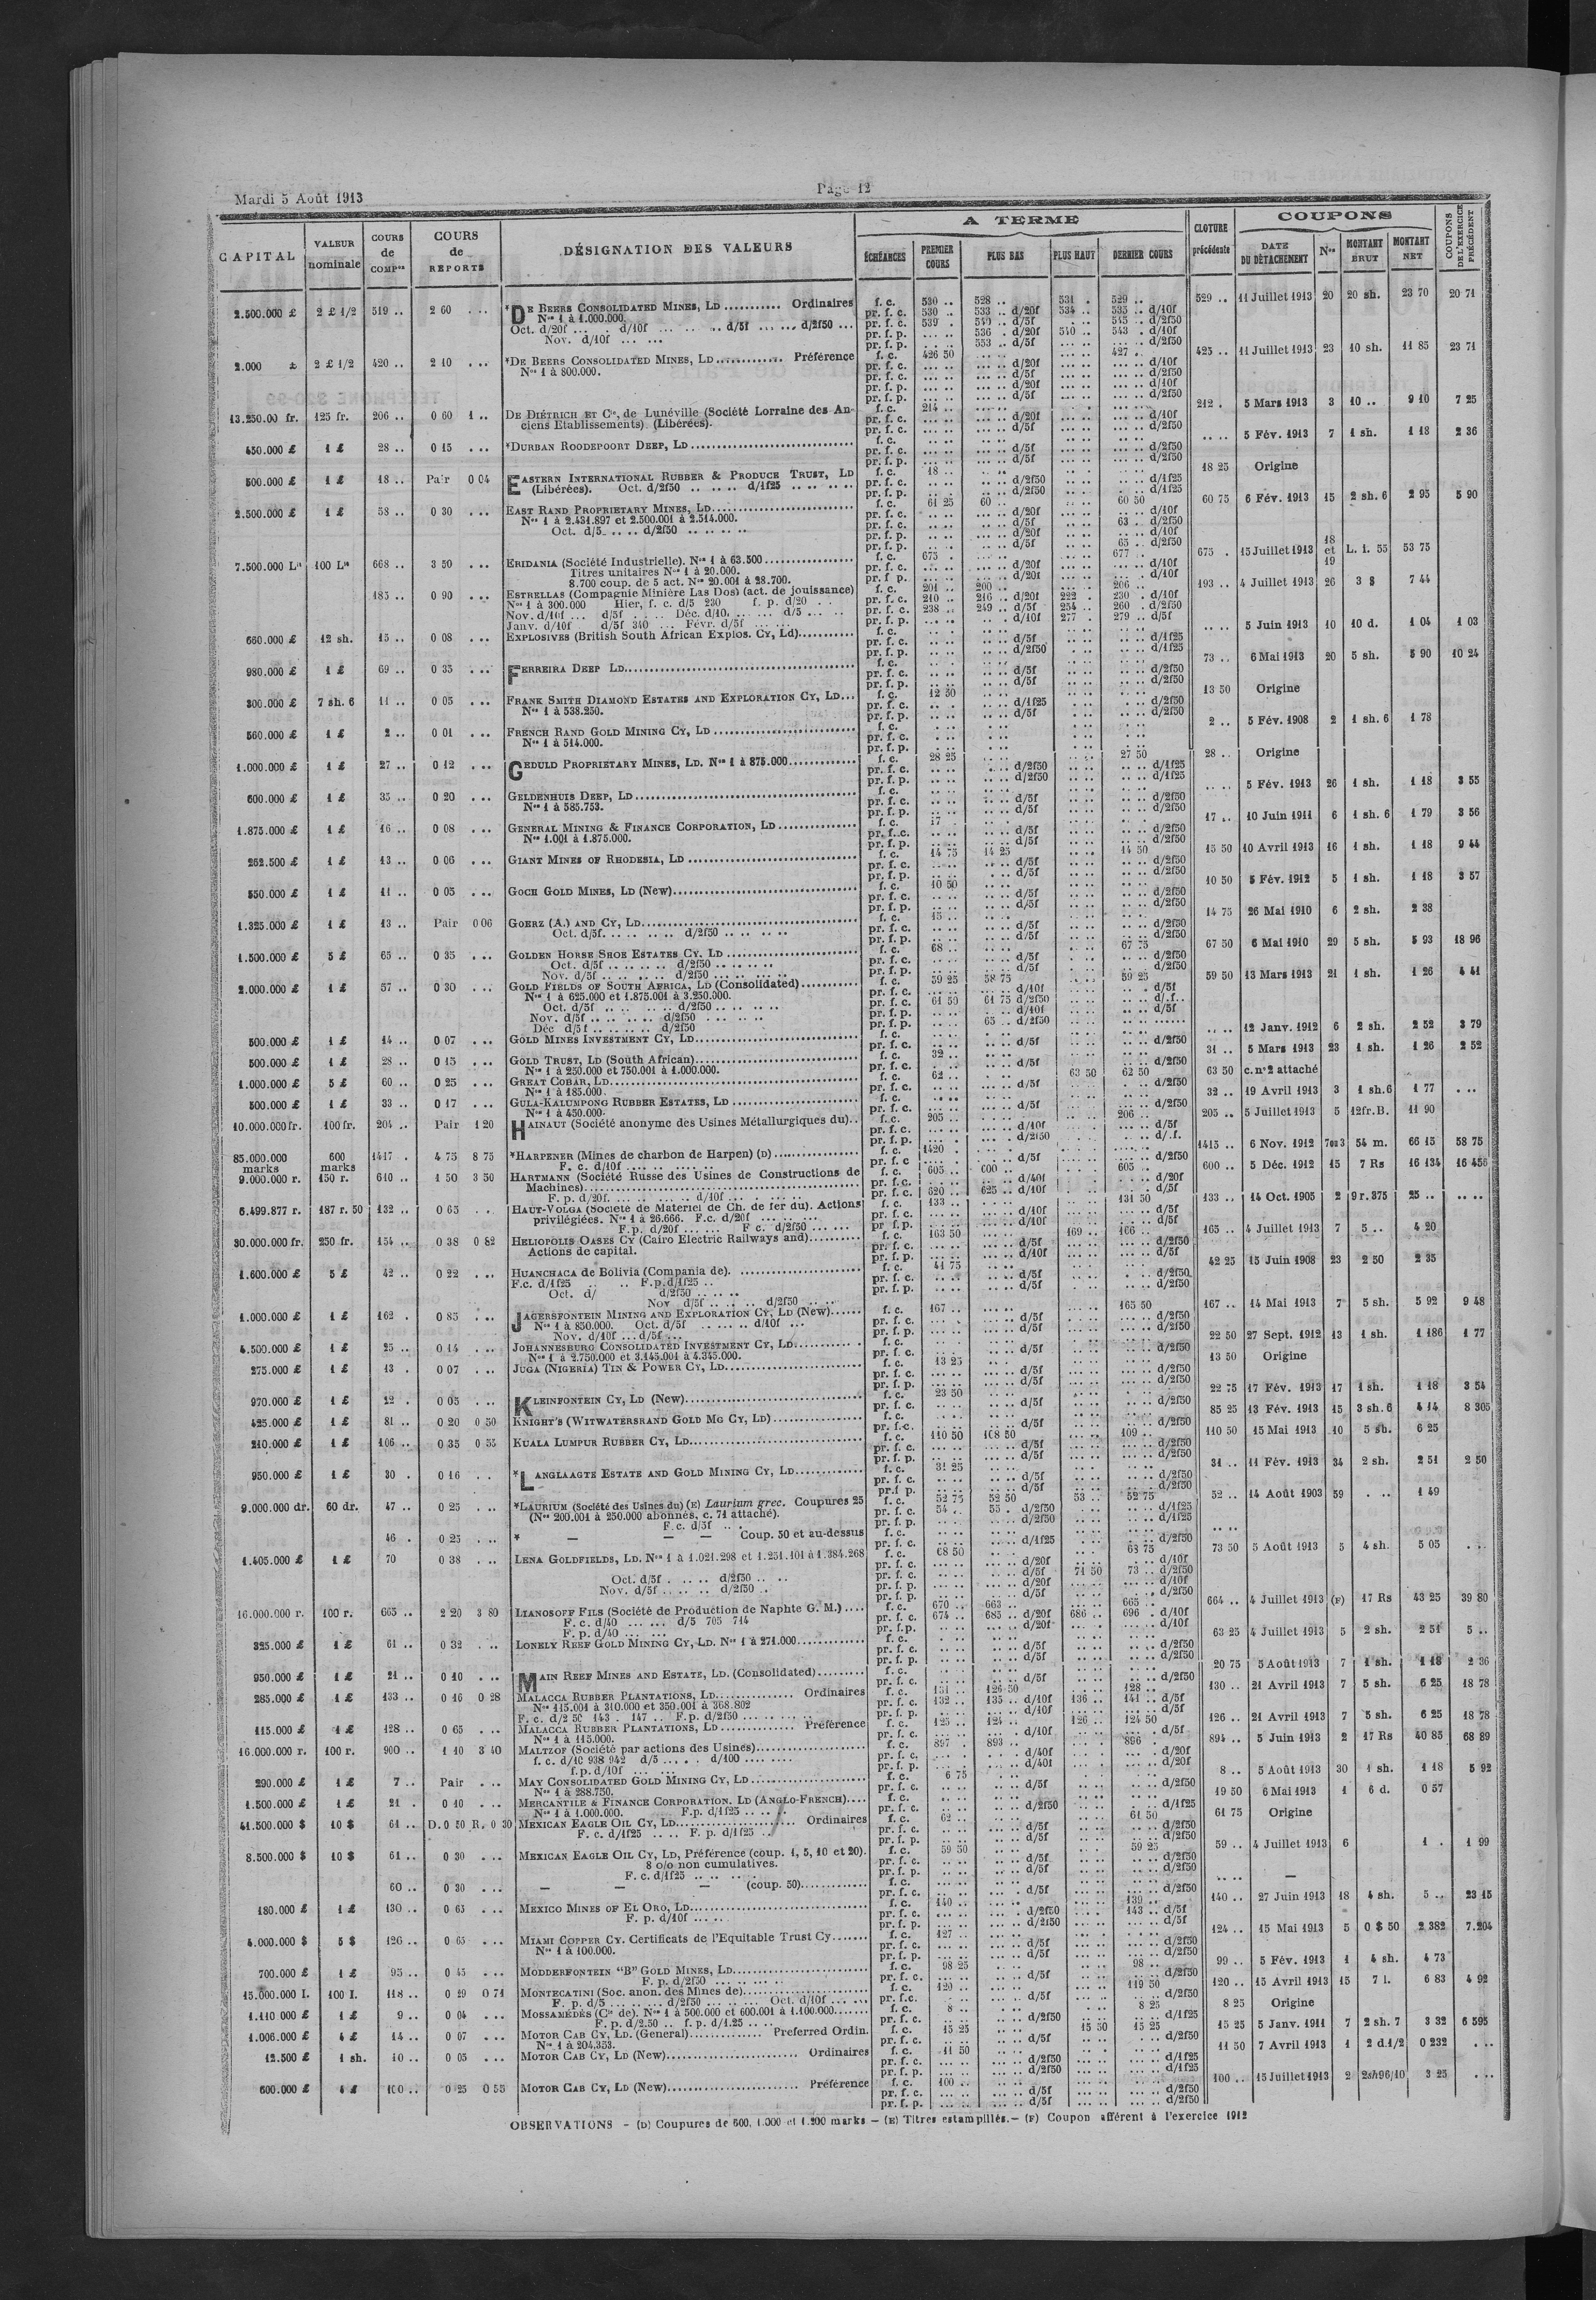 Mardi 5 Août 1913
Page 12
CAPITAL
VALEUR nominale
COURS de COMPon
COURS de REPORTS
DÉSIGNATION DES VALEURS
A TERME
ÉCHÉANCES
PREMIER COURS
PLUS BAS
PLUS HAUT
DERNIER COURS
CLOTURE précédente
COUPONS
DATE DU DÉTACHEMENT
Nos
MONTANT BRUT
MONTANT NET
COUPONS DE L'EXERCICE PRÉCÉDENT
2.500.000 £ 2 £ 1/2 519 .. 2 60 ... *DE BEERS CONSOLIDATED MINES, LD ........... Ordinaires f. c. 530 .. 528 .. 531 . 529 .. 529 .. 11 Juillet 1913 20 20 sh. 23 70 20 71
Nos 1 à 1.000.000. pr. f. c. 530 .. 533 .. d/20f 534 .. 535 .. d/10f
Oct. d/20f ... . d/10f ... .. .. d/5f ... ... d/2f50 ... pr. f. c. 539 . 540 .. d/5f 545 .. d/2f50
Nov. d/10f ... ... pr. f. p. 536 . d/20f 540 .. 543 . d/10f
pr. f. p. 553 .. d/5f d/2f50
2.000 £ 2 £ 1/2 420 .. 2 10 ... *DE BEERS CONSOLIDATED MINES, LD ............ Préférence f. c. 426 50 427 . 425 .. 11 Juillet 1913 23 10 sh. 11 85 23 71
Nos 1 à 800.000.
13.250.00 fr. 125 fr. 206 .. 0 60 1 .. DE DIÉTRICH ET Cie, de Lunéville (Société Lorraine des An- f. c. 214 .. 212 . 5 Mars 1913 3 10 .. 9 10 7 25
ciens Etablissements) (Libérées).
450.000 £ 1 £ 28 .. 0 15 ... *DURBAN ROODEPOORT DEEP, LD f. c. .... 5 Fév. 1913 7 1 sh. 1 18 2 36
500.000 £ 1 £ 18 .. Pair 0 04 EASTERN INTERNATIONAL RUBBER & PRODUCE TRUST, LD f. c. 18 .. 18 25 Origine
(Libérées). Oct. d/2f50 .. .. .. d/1f25 .. .. .. ..
2.500.000 £ 1 £ 58 .. 0 30 ... EAST RAND PROPRIETARY MINES, LD f. c. 61 25 60 .. 60 50 60 75 6 Fév. 1913 15 2 sh. 6 2 95 5 90
Nos 1 à 2.431.897 et 2.500.001 à 2.514.000. 63 . d/2f50
Oct. d/5 .. .. .. d/2f50 .. .. .. .. 65 . d/2f50
7.500.000 Lit 100 Lit 668 .. 3 50 ... ERIDANIA (Société Industrielle). Nos 1 à 63.500 f. c. 675 . 677 . 675 . 15 Juillet 1913 18 et 19 L. i. 55 53 75
Titres unitaires Nos 1 à 20.000.
8.700 coup. de 5 act. Nos 20.001 à 28.700.
185 .. 0 90 ... ESTRELLAS (Compagnie Minière Las Dos) (act. de jouissance) f. c. 201 200 .. 206 .. 193 .. 4 Juillet 1913 26 3 $ 7 44
Nos 1 à 300.000 Hier, f. c. d/5 230 f. p. d/20 . . pr. f. c. 210 .. 216 .. d/20f 222 . 230 . d/10f
Nov. d/10f ... d/5f . ... Déc. d/10. ... ... d/5 ... ... pr. f. c. 238 .. 249 .. d/5f 254 .. 260 . d/2f50
Janv. d/10f d/5f 340 ... Févr. d/5f ... ... pr. f. p. d/10f 277 . 279 .. d/5f
660.000 £ 12 sh. 15 .. 0 08 ... EXPLOSIVES (British South African Explos. Cy, Ld) f. c. .... 5 Juin 1913 10 10 d. 1 04 1 03
980.000 £ 1 £ 69 .. 0 35 ... FERREIRA DEEP LD f. c. 73 .. 6 Mai 1913 20 5 sh. 5 90 10 24
300.000 £ 7 sh. 6 11 .. 0 05 ... FRANK SMITH DIAMOND ESTATES AND EXPLORATION CY, LD... f. c. 12 50 13 50 Origine
Nos 1 à 538.250.
560.000 £ 1 £ 2 .. 0 01 ... FRENCH RAND GOLD MINING CY, LD f. c. 2 .. 5 Fév. 1908 2 1 sh. 6 1 78
Nos 1 à 514.000.
1.000.000 £ 1 £ 27 .. 0 12 ... GEDULD PROPRIETARY MINES, LD. Nos 1 à 875.000 f. c. 28 25 27 50 28 .. Origine
600.000 £ 1 £ 35 .. 0 20 ... GELDENHUIS DEEP, LD f. c. .... 5 Fév. 1913 26 1 sh. 1 18 3 55
Nos 1 à 585.753.
1.875.000 £ 1 £ 16 .. 0 08 ... GENERAL MINING & FINANCE CORPORATION, LD f. c. 17 . 17 .. 10 Juin 1911 6 1 sh. 6 1 79 3 56
Nos 1.001 à 1.875.000.
262.500 £ 1 £ 13 .. 0 06 ... GIANT MINES OF RHODESIA, LD f. c. 14 75 14 25 14 50 15 50 10 Avril 1913 16 1 sh. 1 18 9 44
550.000 £ 1 £ 11 .. 0 05 ... GOCH GOLD MINES, LD (New) f. c. 10 50 10 50 5 Fév. 1912 5 1 sh. 1 18 3 57
1.325.000 £ 1 £ 13 .. Pair 0 06 GOERZ (A.) AND CY, LD f. c. 15 .. 14 75 26 Mai 1910 6 2 sh. 2 38
Oct. d/5f. .. .. .. .. d/2f50 .. .. .. ..
1.500.000 £ 5 £ 65 .. 0 35 ... GOLDEN HORSE SHOE ESTATES CY. LD f. c. 68 .. 67 75 67 50 6 Mai 1910 29 5 sh. 5 93 18 96
Oct. d/5f .. .. .. .. d/2f50 .. .. .. ..
Nov. d/5f .. .. .. .. d/2f50 .. .. .. ..
2.000.000 £ 1 £ 57 .. 0 30 ... GOLD FIELDS OF SOUTH AFRICA, LD (Consolidated) f. c. 59 25 58 75 59 25 59 50 13 Mars 1913 21 1 sh. 1 26 4 41
Nos 1 à 625.000 et 1.875.001 à 3.250.000. pr. f. c. 61 50 61 75 d/2f50
Oct. d/5f .. .. .. .. d/2f50 .. .. .. ..
Nov. d/5f .. .. .. .. d/2f50 .. .. .. .. 65 .. d/2f50
Déc d/5f .. .. .. .. d/2f50
500.000 £ 1 £ 14 .. 0 07 ... GOLD MINES INVESTMENT CY, LD f. c. .... 12 Janv. 1912 6 2 sh. 2 52 3 79
500.000 £ 1 £ 28 .. 0 15 ... GOLD TRUST, LD (South African) f. c. 32 .. 31 .. 5 Mars 1913 23 1 sh. 1 26 2 52
Nos 1 à 250.000 et 750.001 à 1.000.000.
1.000.000 £ 5 £ 60 .. 0 25 ... GREAT COBAR, LD f. c. 62 .. 63 50 62 50 63 50 c. no 2 attaché
Nos 1 à 185.000.
500.000 £ 1 £ 33 .. 0 17 ... GULA-KALUMPONG RUBBER ESTATES, LD f. c. 32 .. 19 Avril 1913 3 1 sh.6 1 77 ...
Nos 1 à 450.000.
10.000.000 fr. 100 fr. 204 .. Pair 1 20 HAINAUT (Société anonyme des Usines Métallurgiques du).. f. c. 205 .. 206 .. 205 .. 5 Juillet 1913 5 12fr.B. 11 90
85.000.000 marks 600 marks 1417 . 4 75 8 75 *HARPENER (Mines de charbon de Harpen) (D) f. c. 1420 . 1415 .. 6 Nov. 1912 7 ou 3 54 m. 66 15 58 75
F. c. d/10f .... .. .... ..
9.000.000 r. 150 r. 610 .. 1 50 3 50 HARTMANN (Société Russe des Usines de Constructions de f. c. 605 .. 600 .. 605 .. 600 .. 5 Déc. 1912 15 7 Rs 16 134 16 455
Machines)
F. p. d/20f. .. ... .. ... d/10f ... . ... .. pr. f. c. 620 .. 625 .. d/10f
6.499.877 r. 187 r. 50 132 .. 0 65 . . HAUT-VOLGA (Société de Matériel de Ch. de fer du). Actions f. c. 133 .. 131 50 133 .. 14 Oct. 1905 2 9 r. 375 25 .. .. ..
privilégiées. Nos 1 à 26.666. F.c. d/20f ... .. ...
F.p. d/20f ... ... F c. d/2f50 ... ...
30.000.000 fr. 250 fr. 154 .. 0 38 0 82 HELIOPOLIS OASES CY (Cairo Electric Railways and) f. c. 163 50 169 .. 166 .. 165 .. 4 Juillet 1913 7 5 .. 4 20
Actions de capital.
1.600.000 £ 5 £ 42 .. 0 22 ... HUANCHACA de Bolivia (Compania de). f. c. 41 75 42 25 15 Juin 1908 23 2 50 2 35
F.c. d/1f25 .. .. F.p.d/1f25 ..
Oct. d/ d/2f50 .. .. ..
Nov d/5f .. .. .. d/2f50 .. ..
1.000.000 £ 1 £ 162 . 0 85 ... JAGERSFONTEIN MINING AND EXPLORATION CY, LD (New) f. c. 167 .. 165 50 167 .. 14 Mai 1913 7 5 sh. 5 92 9 48
Nos 1 à 850.000. Oct. d/5f .. .. .. d/10f ...
Nov. d/10f ... d/5f ...
4.500.000 £ 1 £ 25 .. 0 14 ... JOHANNESBURG CONSOLIDATED INVESTMENT CY, LD f. c. 22 50 27 Sept. 1912 13 1 sh. 1 186 1 77
Nos 1 à 2.750.000 et 3.145.001 à 4.345.000.
275.000 £ 1 £ 13 . 0 07 ... JUGA (NIGERIA) TIN & POWER CY, LD f. c. 13 25 13 50 Origine
970.000 £ 1 £ 12 . 0 05 ... KLEINFONTEIN CY, LD (New) f. c. 23 50 22 75 17 Fév. 1913 17 1 sh. 1 18 3 54
425.000 £ 1 £ 81 .. 0 20 0 50 KNIGHT'S (WITWATERSRAND GOLD MG CY, LD) f. c. 85 25 13 Fév. 1913 15 3 sh. 6 4 14 8 305
210.000 £ 1 £ 106 .. 0 35 0 55 KUALA LUMPUR RUBBER CY, LD f. c. 110 50 108 50 109 .. 110 50 15 Mai 1913 10 5 sh. 6 25
950.000 £ 1 £ 30 . 0 16 .. *LANGLAAGTE ESTATE AND GOLD MINING CY, LD f. c. 31 25 31 .. 11 Fév. 1913 34 2 sh. 2 51 2 50
9.000.000 dr. 60 dr. 47 .. 0 25 ... *LAURIUM (Société des Usines du) (E) Laurium grec. Coupures 25 f. c. 52 75 52 50 53 .. 52 75 52 .. 14 Août 1903 59 . .. 1 49
(Nos 200.001 à 250.000 abonnés, c. 71 attaché). pr. f. c. 54 .. 55 . d/2f50
F.c. d/5f .. .
46 . 0 25 ... * — — — Coup. 50 et au-dessus f. c. .. ..
1.405.000 £ 1 £ 70 0 38 ... LENA GOLDFIELDS, LD. Nos 1 à 1.021.298 et 1.251.101 à 1.384.268 f. c. 68 50 68 75 73 50 5 Août 1913 5 4 sh. 5 05 ...
Oct. d/5f . .. .. d/2f50 .. .. d/5f 71 50 73 .. d/2f50
Nov. d/5f .. .. .. d/2f50 ..
16.000.000 r. 100 r. 665 .. 2 20 3 80 LIANOSOFF FILS (Société de Production de Naphte G. M.) f. c. 670 .. 663 .. 665 .. 664 .. 4 Juillet 1913 (F) 17 Rs 43 25 39 80
F. c. d/40 ... ... d/5 705 714 pr. f. c. 674 .. 685 .. d/20f 686 .. 696 . d/10f
F. p. d/40 ... ...
325.000 £ 1 £ 61 .. 0 32 ... LONELY REEF GOLD MINING CY, LD. Nos 1 à 271.000 f. c. 63 25 4 Juillet 1913 5 2 sh. 2 51 5 ..
950.000 £ 1 £ 21 .. 0 10 ... MAIN REEF MINES AND ESTATE, LD. (Consolidated) f. c. 20 75 5 Août 1913 7 1 sh. 1 18 2 36
285.000 £ 1 £ 133 .. 0 16 0 28 MALACCA RUBBER PLANTATIONS, LD Ordinaires f. c. 131 .. 126 50 128 .. 130 .. 21 Avril 1913 7 5 sh. 6 25 18 78
Nos 115.001 à 310.000 et 350.001 à 368.802 pr. f. c. 132 .. 135 .. d/10f 136 .. 141 .. d/5f
F. c. d/2 50 143 . 147 .. F.p. d/2f50 ... .. ... ..
115.000 £ 1 £ 128 .. 0 65 ... MALACCA RUBBER PLANTATIONS, LD Préférence f. c. 125 .. 124 .. 126 .. 124 50 126 .. 21 Avril 1913 7 5 sh. 6 25 18 78
Nos 1 à 115.000.
16.000.000 r. 100 r. 900 .. 1 10 3 40 MALTZOF (Société par actions des Usines) f. c. 897 . 893 .. 896 . 894 .. 5 Juin 1913 2 17 Rs 40 85 68 89
f. c. d/10 938 942 d/5 ... . . d/100 ... ....
f.p. d/10f ... ...
290.000 £ 1 £ 7 .. Pair ... MAY CONSOLIDATED GOLD MINING CY, LD f. c. 6 75 8 .. 5 Août 1913 30 1 sh. 1 18 5 92
Nos 1 à 288.750.
1.500.000 £ 1 £ 21 . 0 10 ... MERCANTILE & FINANCE CORPORATION. LD (ANGLO-FRENCH) f. c. 19 50 6 Mai 1913 1 6 d. 0 57
Nos 1 à 1.000.000. F.p. d/1f25 .. .. ..
41.500.000 $ 10 $ 61 .. D. 0 50 R. 0 30 MEXICAN EAGLE OIL CY, LD Ordinaires f. c. 62 .. 61 50 61 75 Origine
F. c. d/1f25 .. .. F. p. d/1f25 ..
8.500.000 $ 10 $ 61 .. 0 30 ... MEXICAN EAGLE OIL CY, LD, Préférence (coup. 1, 5, 10 et 20). f. c. 59 50 59 25 59 .. 4 Juillet 1913 6 1 . 1 99
8 o/o non cumulatives.
F. c. d/1f25 .. .. .. ..
60 .. 0 30 ... — — — (coup. 50) f. c. .. .. —
180.000 £ 1 £ 130 .. 0 65 ... MEXICO MINES OF EL ORO, LD f. c. 140 .. 139 .. 140 .. 27 Juin 1913 18 4 sh. 5 .. 23 15
F. p. d/10f ... .. d/2f50 143 .. d/5f
4.000.000 $ 5 $ 126 .. 0 65 ... MIAMI COPPER CY. Certificats de l'Equitable Trust Cy f. c. 127 .. 124 .. 15 Mai 1913 5 0 $ 50 2 382 7.204
Nos 1 à 100.000.
700.000 £ 1 £ 95 .. 0 45 ... MODDERFONTEIN "B" GOLD MINES, LD f. c. 98 25 98 .. 99 .. 5 Fév. 1913 1 4 sh. 4 73
F. p. d/2f50 ... .. .. ..
15.000.000 l. 100 l. 118 .. 0 29 0 71 MONTECATINI (Soc. anon. des Mines de) f. c. 120 .. 119 50 120 .. 15 Avril 1913 15 7 l. 6 83 4 92
F. p. d/5 ... .. ... .. d/2f50 ... .. ... .. Oct. d/10f ... ...
1.110.000 £ 1 £ 9 .. 0 04 ... MOSSAMÉDÈS (Cie de). Nos 1 à 500.000 et 600.001 à 1.100.000 f. c. 8 .. 8 25 8 25 Origine
F. p. d/2.50 .. f. p. d/1.25 .. ..
1.006.000 £ 4 £ 14 .. 0 07 ... MOTOR CAB CY, LD. (General) Preferred Ordin. f. c. 15 25 15 50 15 25 15 25 5 Janv. 1911 7 2 sh. 7 3 32 6 595
Nos 1 à 204.353.
12.500 £ 1 sh. 10 .. 0 05 ... MOTOR CAB CY, LD (New) Ordinaires f. c. 11 50 11 50 7 Avril 1913 1 2 d.1/2 0 232 ...
600.000 £ 4 £ 100 .. 0 25 0 55 MOTOR CAB CY, LD (New) Préférence f. c. 100 .. 100 .. 15 Juillet 1913 2 2sh96/10 3 25 ...
OBSERVATIONS – (D) Coupures de 600, 1.000 et 1.200 marks — (E) Titres estampillés. — (F) Coupon afférent à l'exercice 1912